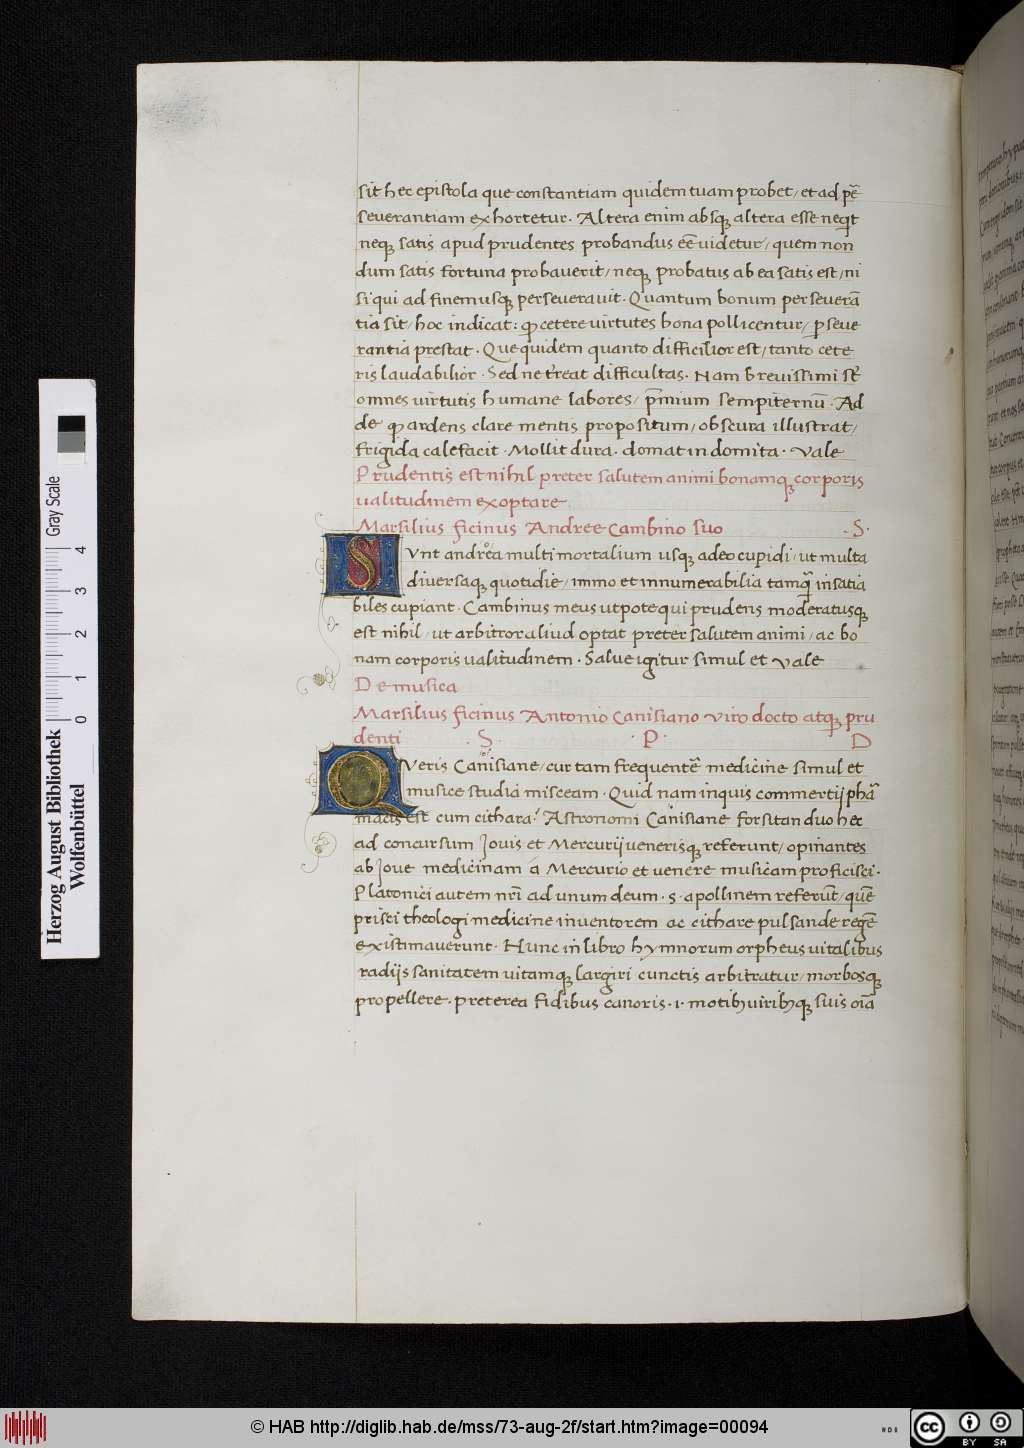 sit hec epistola que constantiam quidem tuam probet/ et ad ꝑẽ
severantiam exhortetur. Altera enim absqꝫ altera esse neqit
neqꝫ satis apud prudentes probandus eẽ uidetur/ quem non
dum satis fortuna probaverit/ neqꝫ probatus ab ea satis est/ ni
si qui ad finem usqꝫ perseveravit. Quantum bonum perseverã
tia sit/ hoc indicat: qꝫ cetere virtutes bona pollicentur/ ꝑseve
rantia prestat. Que quidem quanto difficilior est/ tanto cete
ris laudabilior. Sed ne t̃reat difficultas. Nam brevissimi st̃
omnes virtutis humane labores/ p̃mium sempiternũ. Ad
de qꝫ ardens clare mentis propositum/ obscura illustrat/
frigida calefacit. Mollit dura. domat indomita. Vale
Prudentis est nihil preter salutem animi bonamqꝫ corporis
ualitudinem exoptare
Marsilius ficinus Andree Cambino suo .S.
SVnt andrea multi mortalium usqꝫ adeo cupidi/ ut multa
diversaqꝫ quotidie/ immo et innumerabilia tamq̃ insatia
biles cupiant. Cambinus meus utpote qui prudens moderatusqꝫ
est nihil/ ut arbitror aliud optat preter salutem animi/ ac bo
nam corporis ualitudinem. Salve igitur simul et Vale
De musica
Marsilius ficinus Antonio Canisiano viro docto atqꝫ pru
denti .S. .P. D
QVeris Canisiane/ cur tam frequentẽ medicine simul et
musice studia misceam. Quid nam inquis commertij phã
macis est cum cithara? Astronomi Canisiane forsitan duo hec
ad concursum Jouis et Mercurij uenerisqꝫ referunt/ opinantes
ab Joue medicinam á Mercurio et venere musicam proficisci.
Platonici autem nr̃i ad unum deum .s. apollinem referũt/ quẽ
prisci theologi medicine inventorem ac cithare pulsande regẽ
existimaverunt. Nunc in libro hymnorum orpheus vitalibus
radijs sanitatem uitamqꝫ largiri cunctis arbitratur/ morbosqꝫ
propellere. preterea fidibus canoris .i. motibꝫ viribꝫqꝫ suis oĩa
Herzog August Bibliothek
Wolfenbüttel
Gray Scale
0 1 2 3 4
© HAB http://diglib.hab.de/mss/73-aug-2f/start.htm?image=00094
cc BY SA